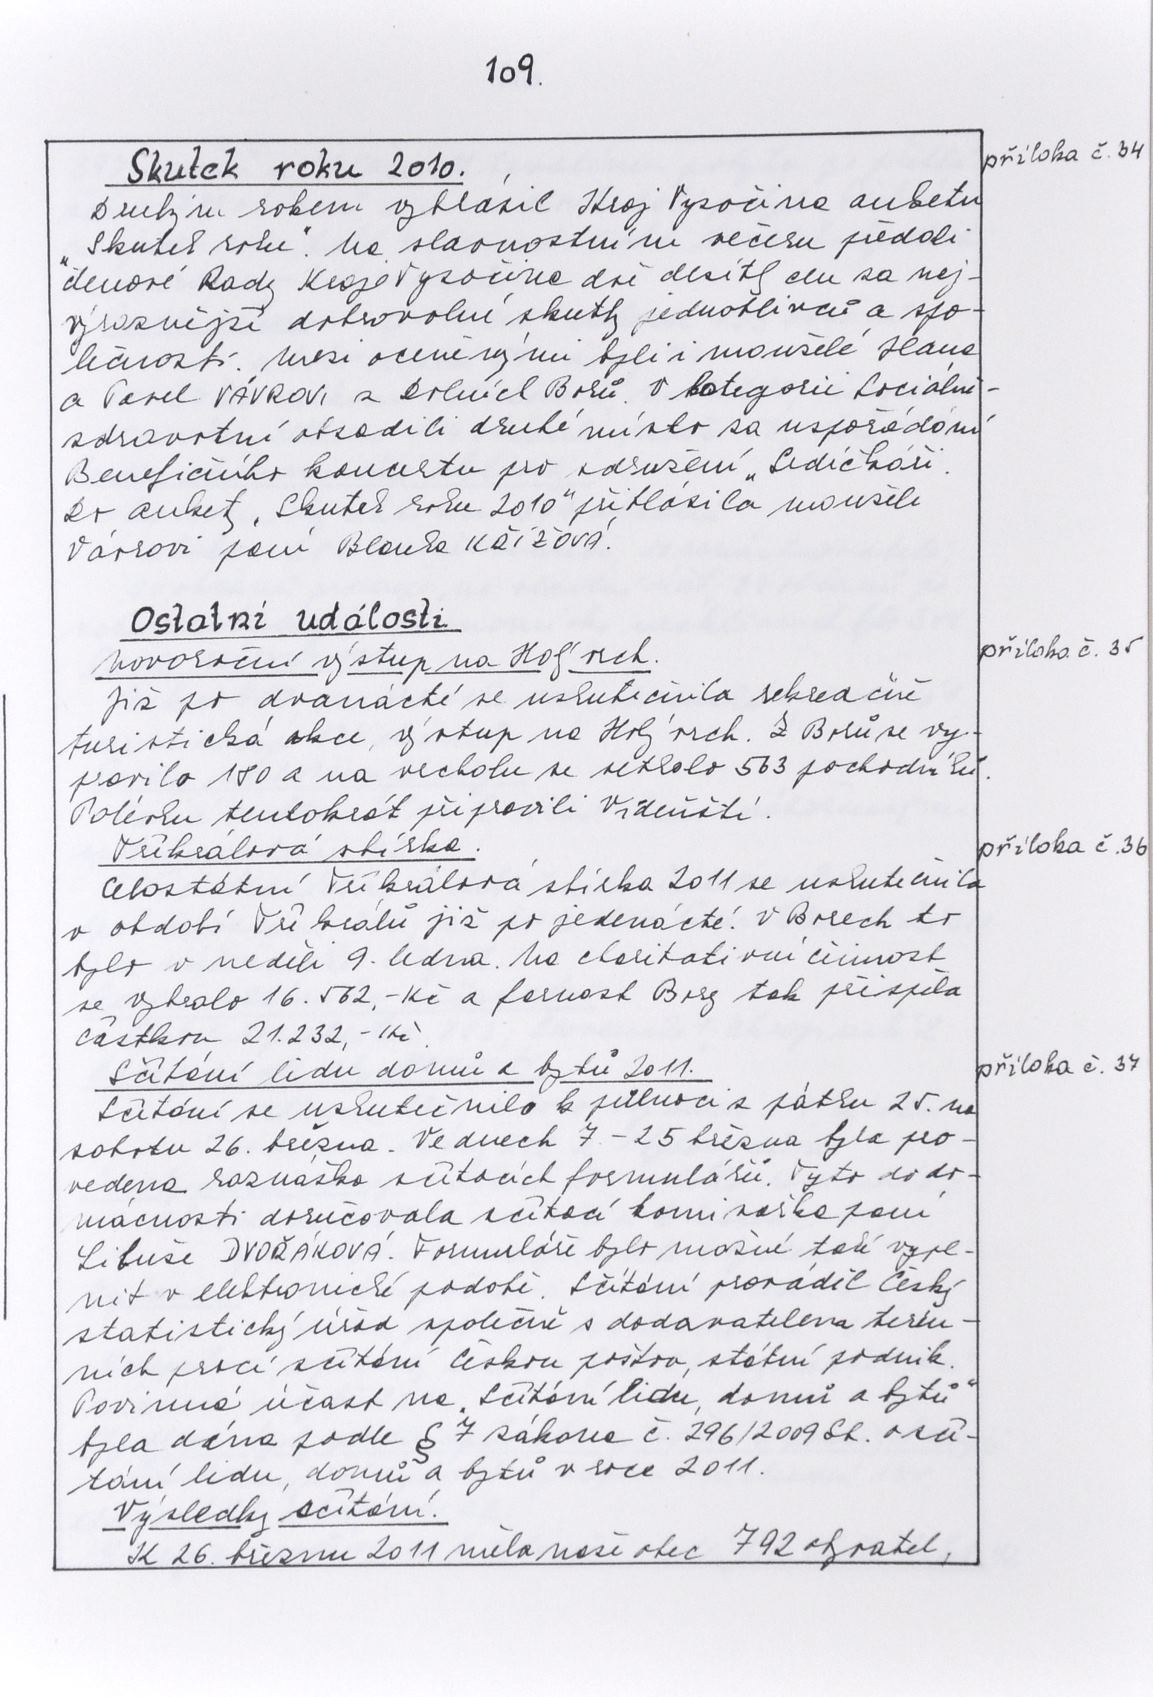 109.
Skutek roku 2010.
příloha č. 34
Druhým rokem vyhlásil Kraj Vysočina anketu
„Skutek roku". Na slavnostním večeru předali
členové Rady Kraje Vysočina dvě desítky cen za nej-
výraznější dobrovolné skutky jednotlivců a spo-
lečností. Mezi oceněnými byli i manželé Hana
a Pavel VÁVROVI z Dolních Borů. V kategorii Sociálně-
zdravotní obsadili druhé místo za uspořádání
Benefičního koncertu pro sdružení „Srdíčkáři.
Do ankety „Skutek roku 2010" přihlásila manžele
Vávrovi paní Blanka KŘÍŽOVÁ.
Ostatní události
Novoroční výstup na Holý vrch.
příloha č. 35
Již po dvanácté se uskutečnila rekreačně
turistická akce, výstup na Holý vrch. Z Borů se vy-
pravilo 180 a na vrcholu se setkalo 563 pochodníků.
Polévku tentokrát připravili Vídeňští.
Tříkrálová sbírka.
příloha č. 36
Celostátní Tříkrálová sbírka 2011 se uskutečnila
v období Tří králů již po jedenácté. V Borech to
bylo v neděli 9. ledna. Na charitativní činnost
se vybralo 16.562,-Kč a farnost Bory tak přispěla
částkou 21.232,-Kč.
Sčítání lidu domů a bytů 2011.
příloha č. 37
Sčítání se uskutečnilo k půlnoci z pátku 25. na
sobotu 26. března. Ve dnech 7.-25 března byla pro-
vedena roznáška sčítacích formulářů. Tyto do do-
mácností doručovala sčítací komisařka paní
Libuše DVOŘÁKOVÁ. Formuláře bylo možné také vypl-
nit v elektronické podobě. Sčítání prováděl Český
statistický úřad společně s dodavatelem terén-
ních prací sčítání Českou poštou, státní podnik.
Povinná účast na „Sčítání lidu, domů a bytů"
byla dána podle § 7 zákona č. 296/2009 Sb. o sčí-
tání lidu, domů a bytů v roce 2011.
Výsledky sčítání.
K 26. březnu 2011 měla naše obec 792 obyvatel,